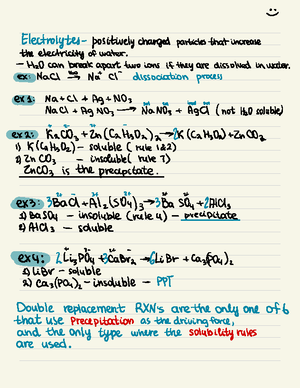 Electrolytes- positively charged particles that increase
the electricity of water.
- H₂O can break apart two ions if they are dissolved in water.
ex: NaCl → Na⁺ Cl⁻ dissociation process
ex 1: Na + Cl + Ag + NO₃
NaCl + Ag NO₃ → Na NO₃ + AgCl (not H₂O soluble)
ex 2: K₂CO₃ + Zn(C₂H₃O₂)₂ → 2K(C₂H₃O₂) + ZnCO₃
1) K(C₂H₃O₂) - soluble (rule 1&2)
2) ZnCO₃ - insoluble (rule 7)
ZnCO₃ is the precipitate.
ex 3: 3BaCl + Al₂(SO₄)₃ → 3BaSO₄ + 2AlCl₃
1) BaSO₄ - insoluble (rule 4) - precipitate
2) AlCl₃ - soluble
ex 4: 2Li₃PO₄ + 3CaBr₂ → 6LiBr + Ca₃(PO₄)₂
1) LiBr - soluble
2) Ca₃(PO₄)₂ - insoluble - PPT
Double replacement RXN's are the only one of 6
that use Precipitation as the driving force,
and the only type where the solubility rules
are used.